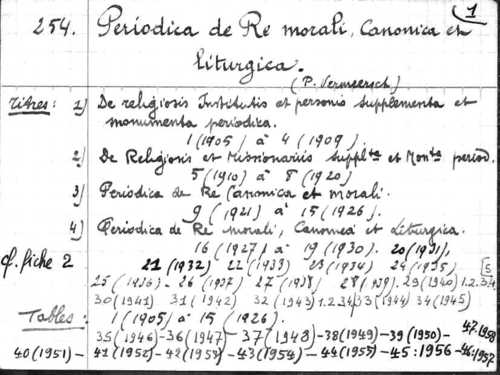 1
254. Periodica de Re morali, Canonica et
liturgica.
(P. Vermeersch)
Titres: 1) De religiosis Institutis et personis supplementa et
monumenta periodica.
1 (1905) à 4 (1909).
2) De Religiosis et Missionariis supplta et Monta period.
5 (1910) à 8 (1920)
3) Periodica de Re Canonica et morali.
9 (1921) à 15 (1926).
4) Periodica de Re morali, Canonica et Liturgica.
16 (1927) à 19 (1930). 20 (1931),
cf. fiche 2 21 (1932) 22 (1933) 23 (1934) 24 (1935)
25 (1936) - 26 (1937) 27 (1938) 28 (1939). 29 (1940) 1.2.3/4
30 (1941) 31 (1942) 32 (1943) 1.2.3/4 33 (1944) 34 (1945)
Tables: 1 (1905) à 15 (1926).
35 (1946) - 36 (1947) - 37 (1948) - 38 (1949) - 39 (1950) - 47.1958
40 (1951) - 41 (1952) - 42 (1953) - 43 (1954) - 44 (1955) - 45: 1956 - 46: 1957